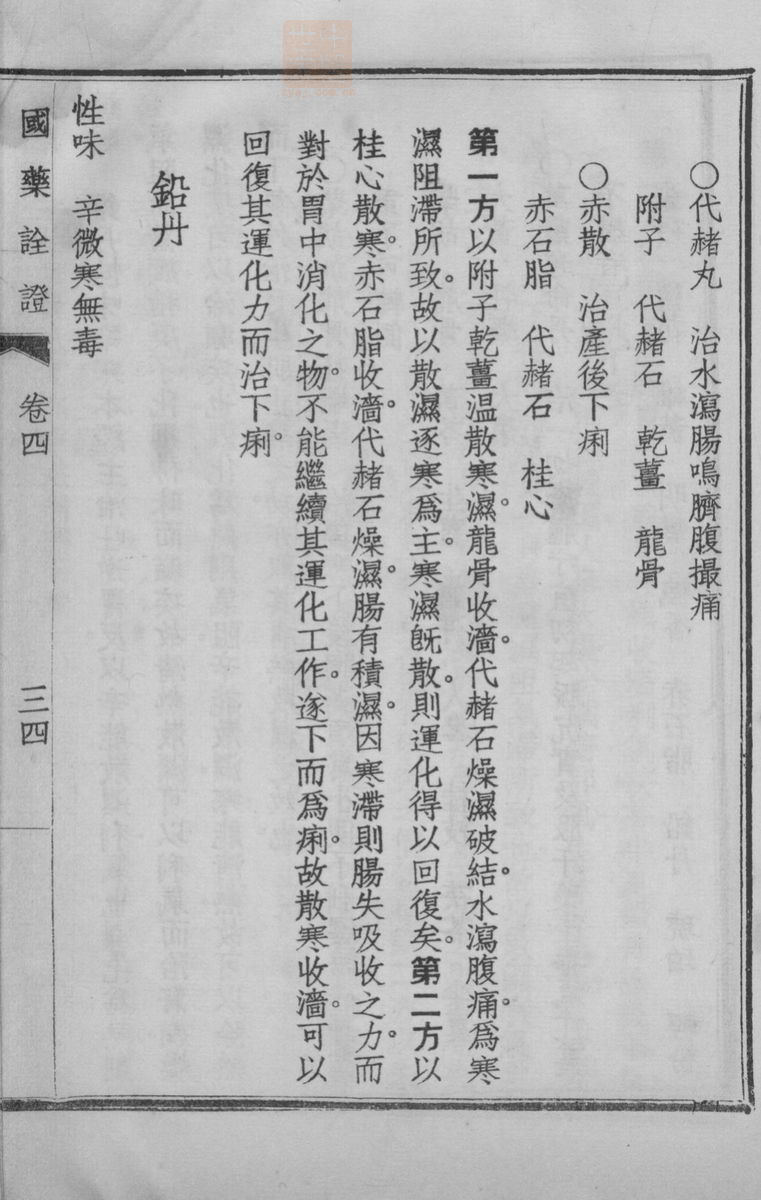 〇代赭丸　治水瀉腸鳴臍腹撮痛
附子　代赭石　乾薑　龍骨
〇赤散　治產後下痢
赤石脂　代赭石　桂心
第一方以附子乾薑温散寒濕。龍骨收濇。代赭石燥濕破結。水瀉腹痛。爲寒
濕阻滯所致。故以散濕逐寒爲主。寒濕旣散。則運化得以回復矣。第二方以
桂心散寒。赤石脂收濇。代赭石燥濕。腸有積濕。因寒滯則腸失吸收之力。而
對於胃中消化之物。不能繼續其運化工作。遂下而爲痢。故散寒收濇。可以
回復其運化力而治下痢。
鉛丹
性味　辛微寒無毒
國藥詮證　卷四　三四